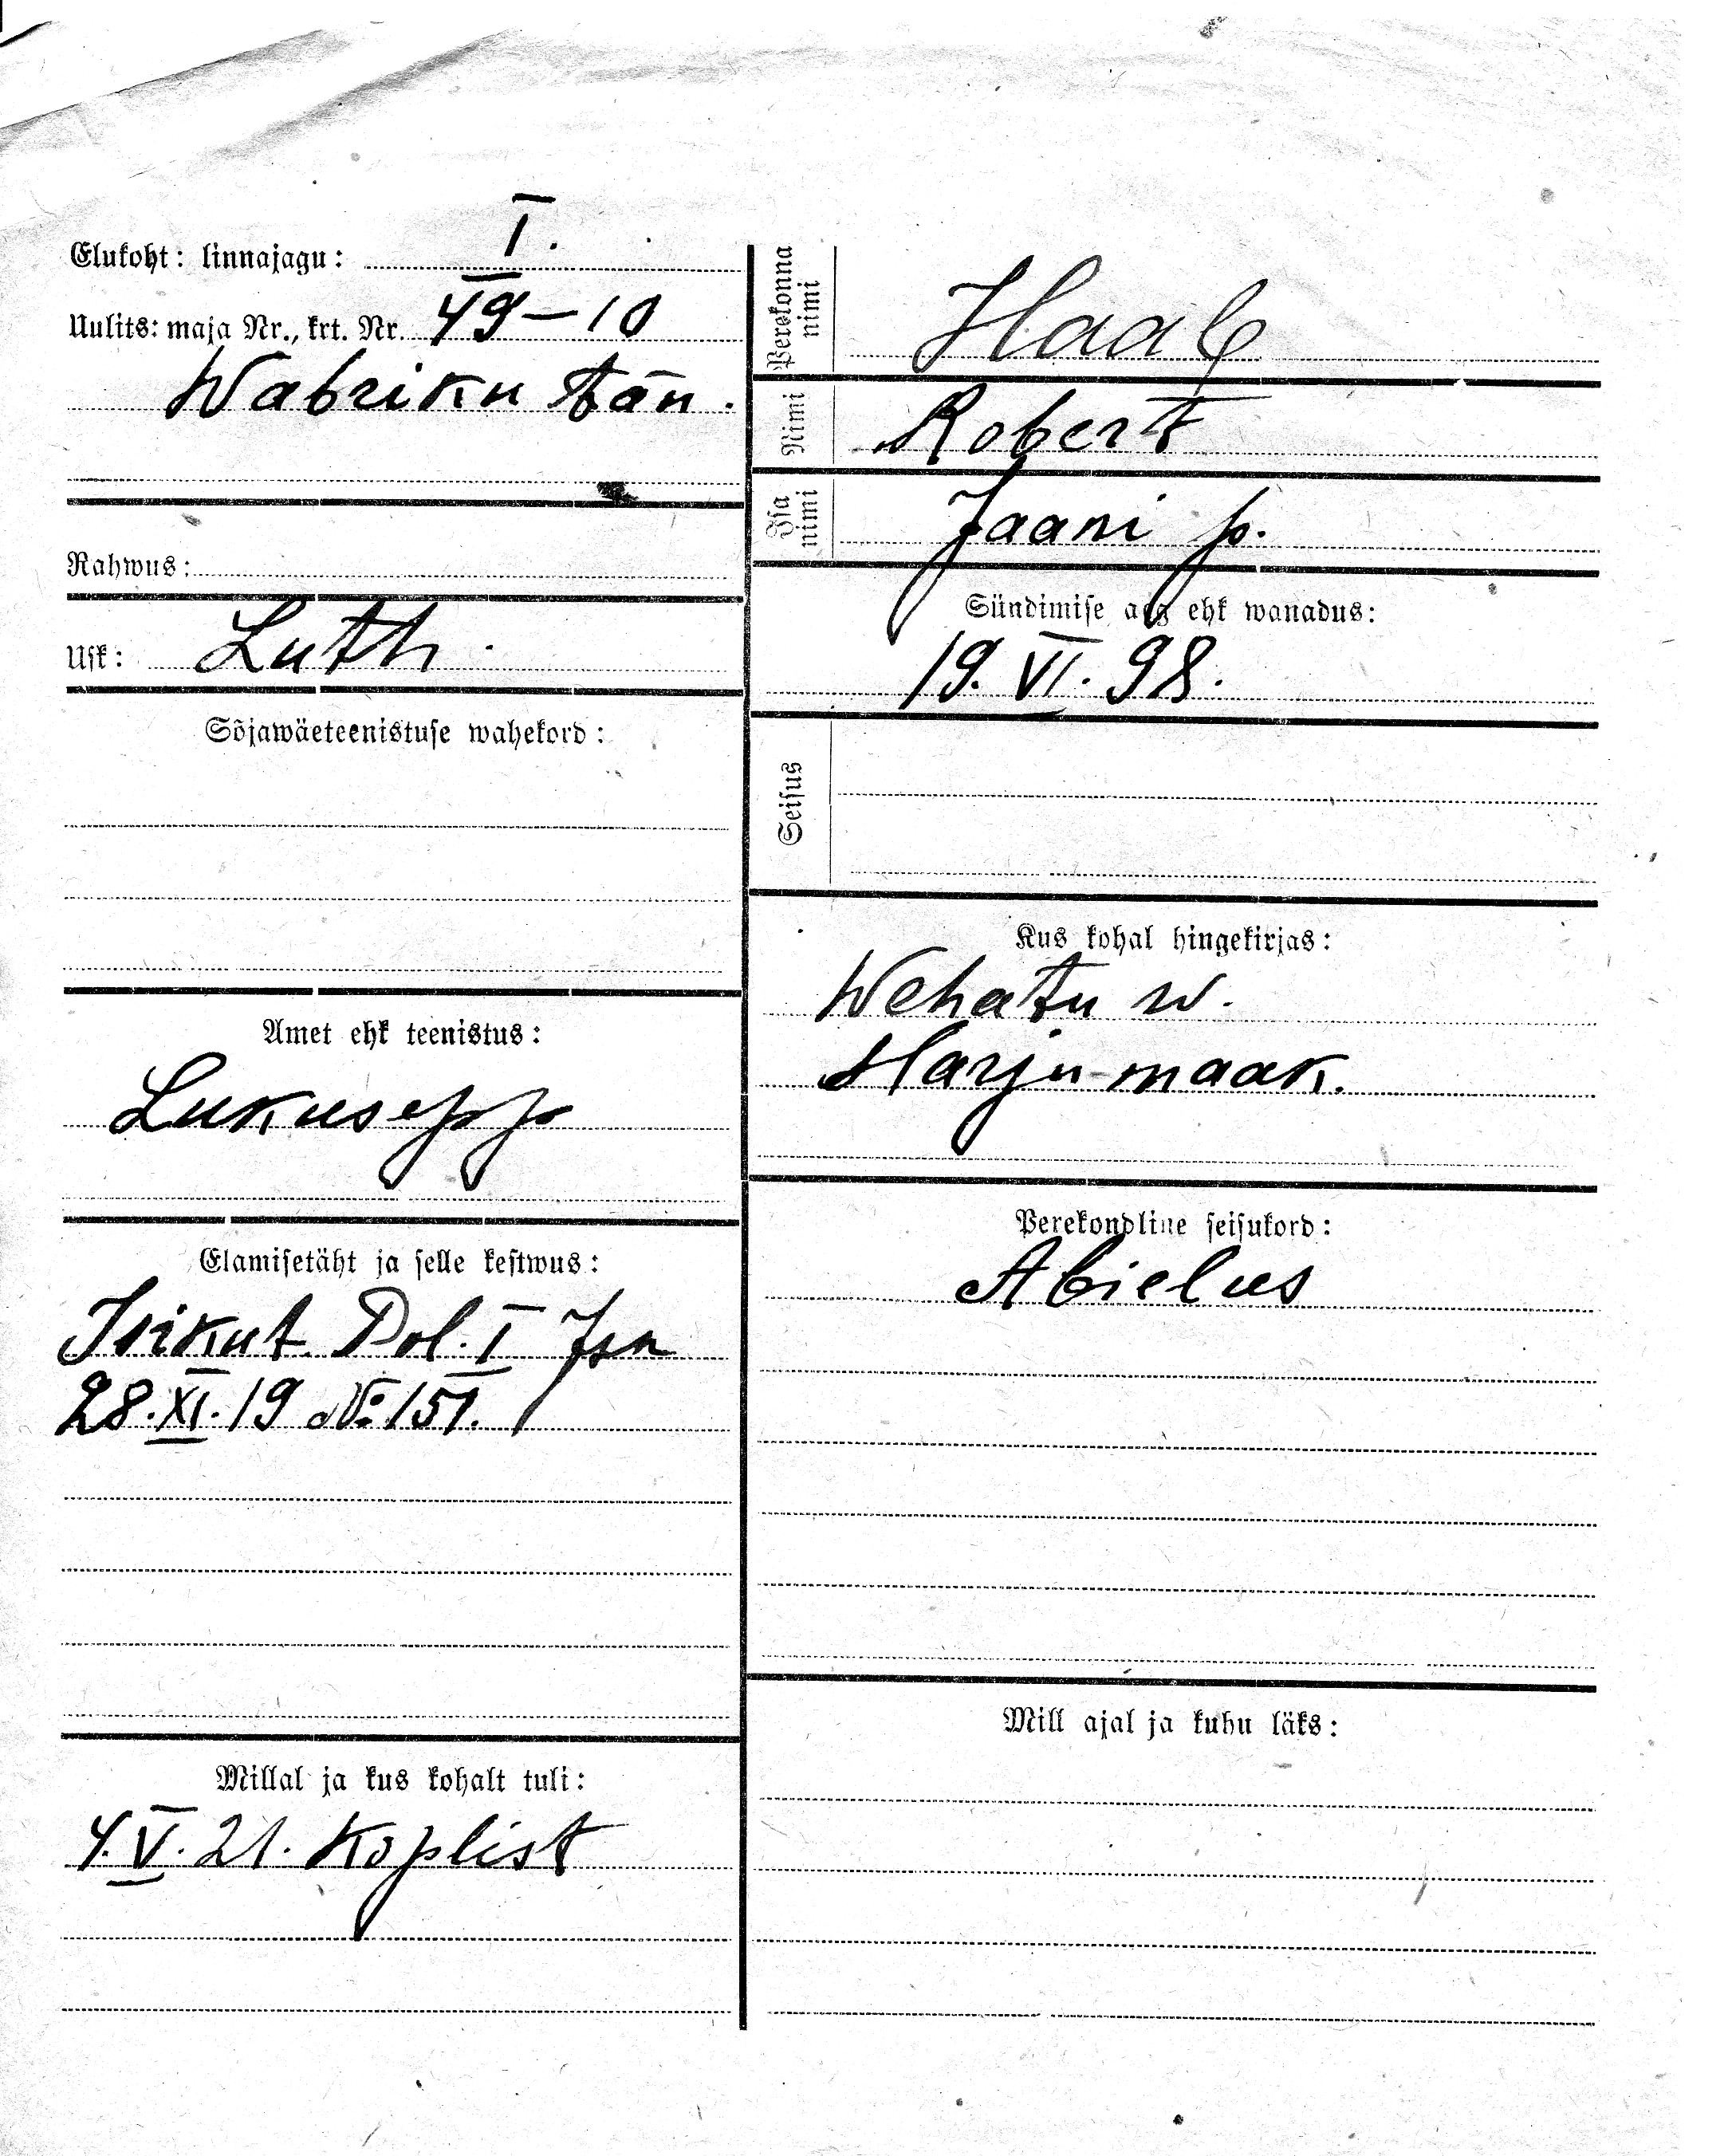 Elukoht: linnajagu: I.
Uulits: maja Nr., krt. Nr. 49–10
Wabriku tän.
Rahwus:
Usk: Luth.
Sõjawäeteenistuse wahekord:
Amet ehk teenistus:
Lukusepp
Elamisetäht ja selle kestwus:
Isikut. Pol. I Jsk
28.XI.19 № 151.
Millal ja kus kohalt tuli:
4.V.21. Koplist
Perekonna nimi Haab
Nimi Robert
Isa nimi Jaani p.
Sündimise aeg ehk wanadus:
19.VI.98.
Seisus
Kus kohal hingekirjas:
Wehatu w.
Harju-maak.
Perekondline seisukord:
Abielus
Mill ajal ja kuhu läks: